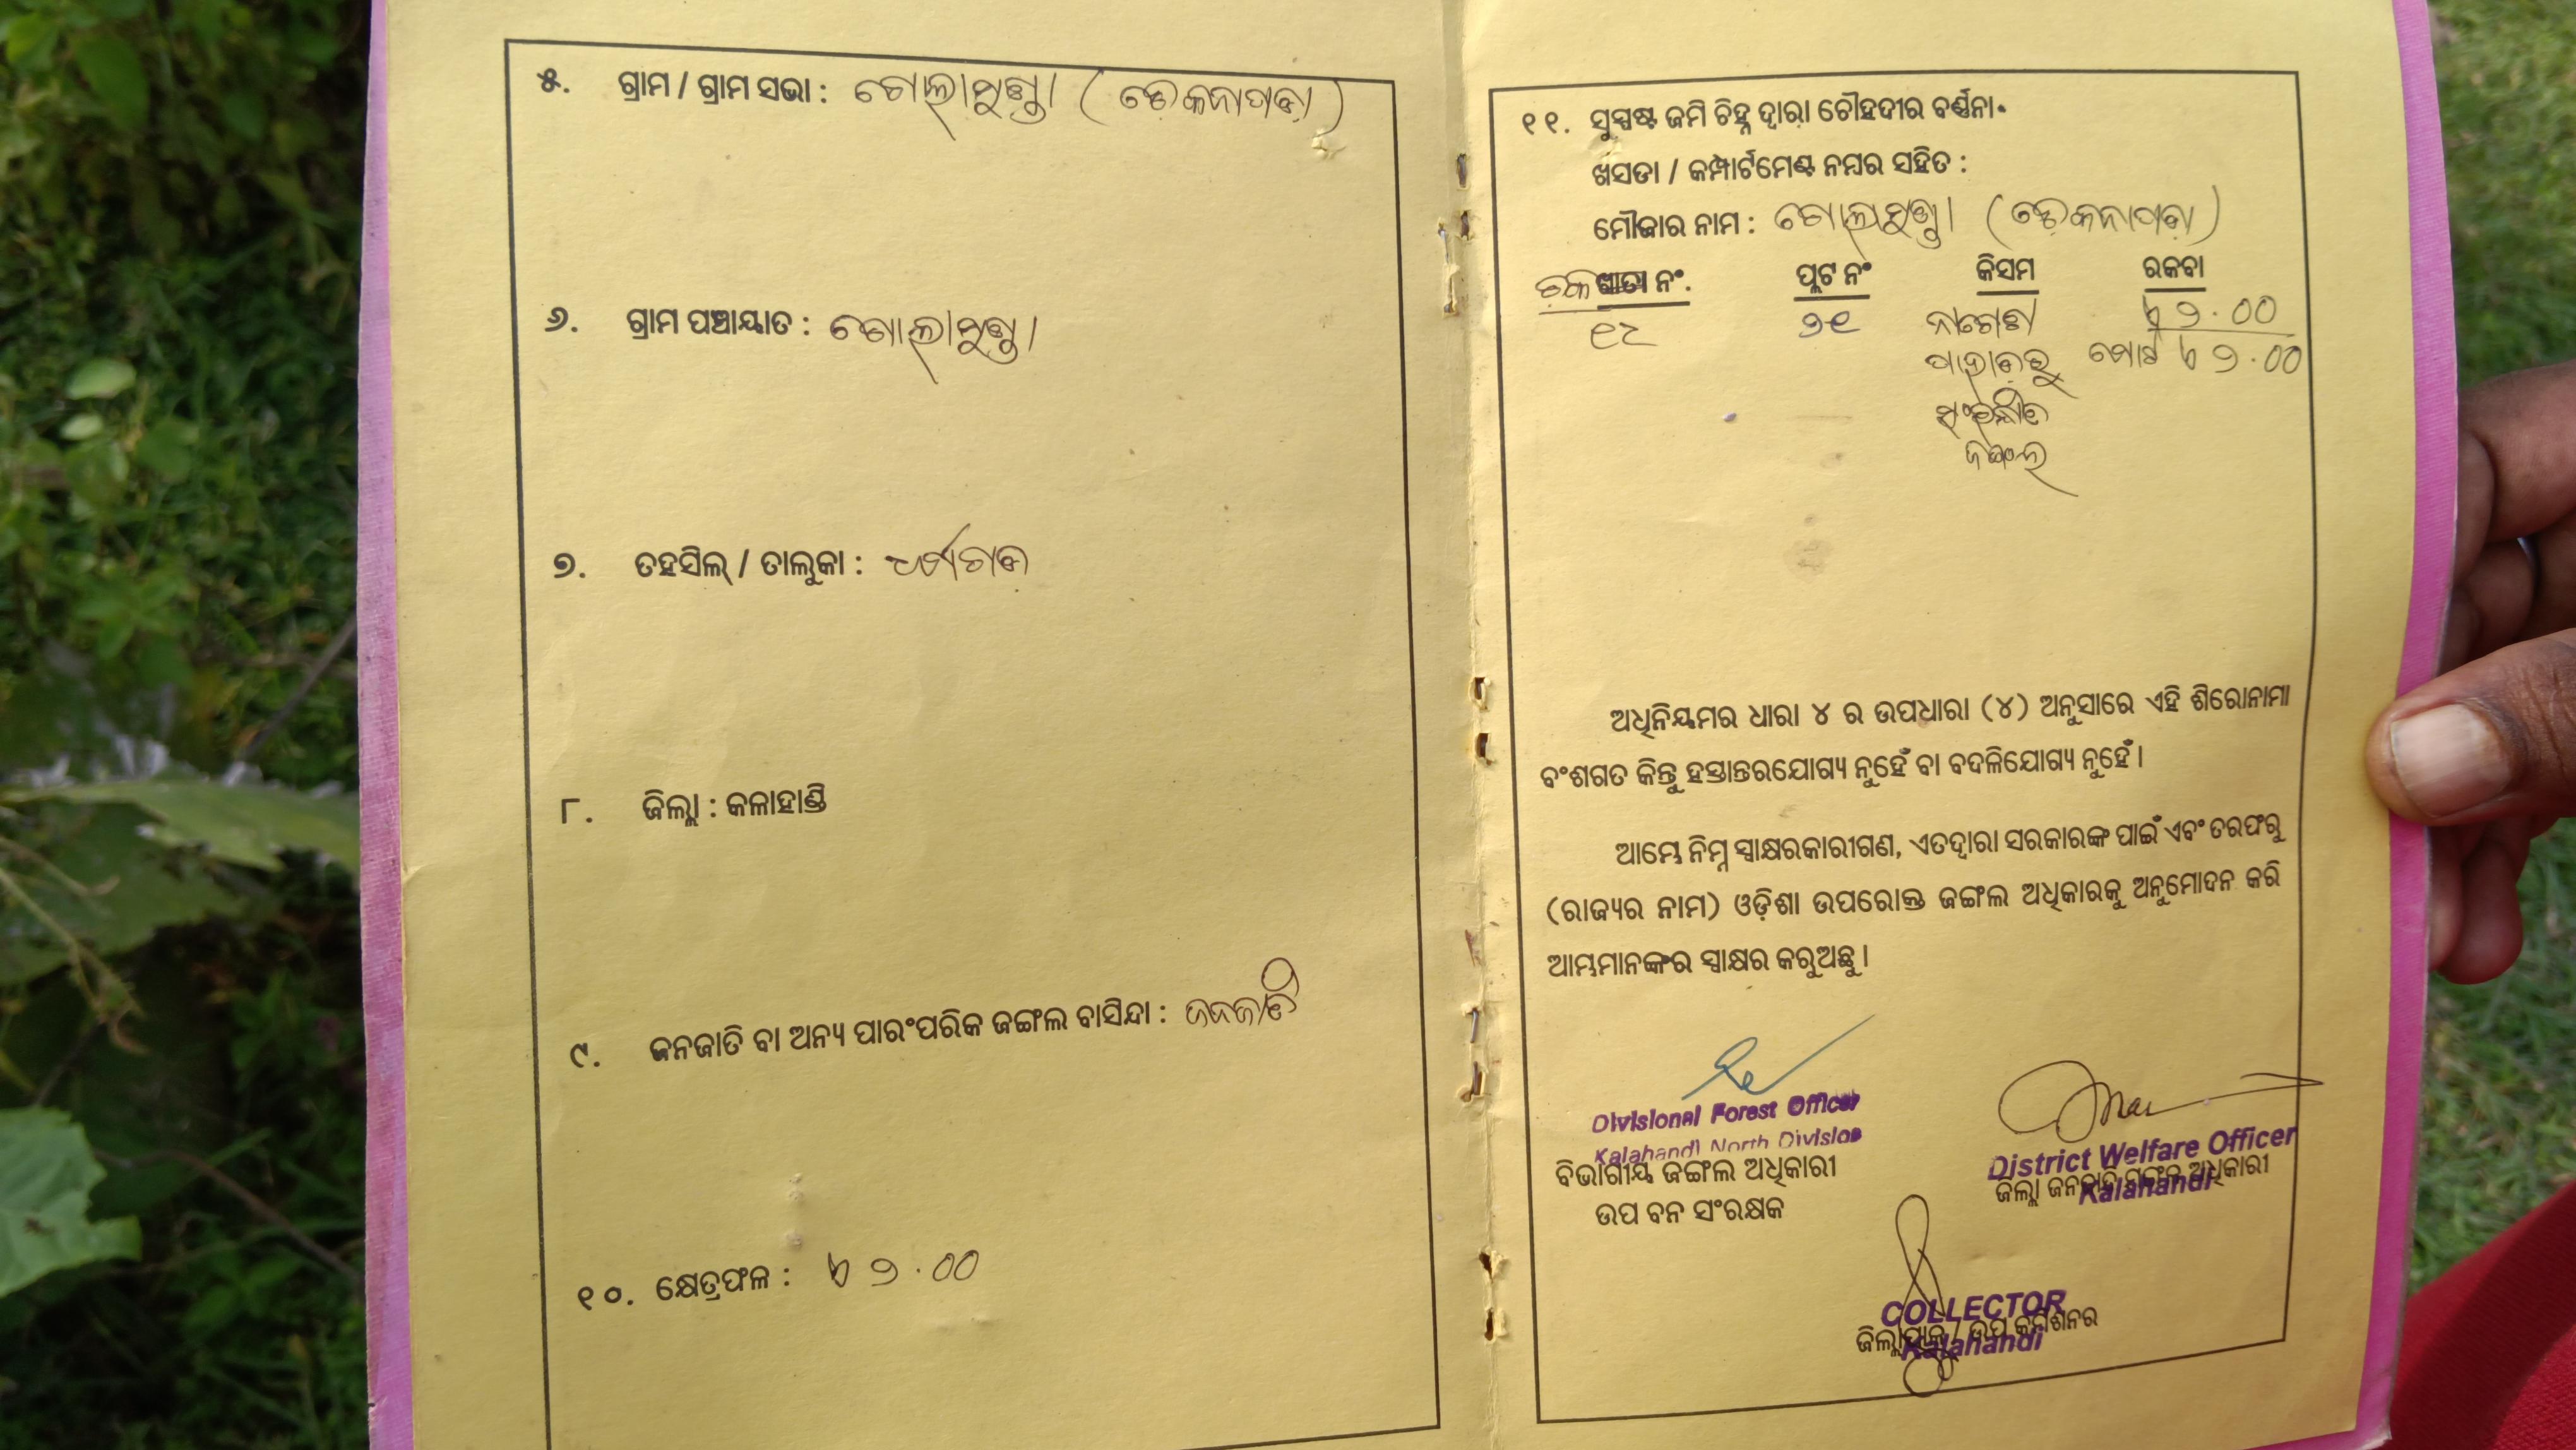 ୫. ଗ୍ରାମ / ଗ୍ରାମ ସଭା : ଗୋଲାମୁଣ୍ଡା (ଢେକନାପଡା)
୬. ଗ୍ରାମ ପଞ୍ଚାୟାତ : ଗୋଲାମୁଣ୍ଡା
୭. ତହସିଲ୍ / ତାଲୁକା : ଧର୍ମଗଡ
୮. ଜିଲ୍ଲା : କଳାହାଣ୍ଡି
୯. ଜନଜାତି ବା ଅନ୍ୟ ପାରଂପରିକ ଜଙ୍ଗଲ ବାସିନ୍ଦା : ଜନଜାତି
୧୦. କ୍ଷେତ୍ରଫଳ : ଏ ୨.୦୦
୧୧. ସୁସ୍ପଷ୍ଟ ଜମି ଚିହ୍ନ ଦ୍ୱାରା ଚୌହଦୀର ବର୍ଣ୍ଣନା.
ଖସଡା / କମ୍ପାର୍ଟମେଣ୍ଟ ନମ୍ବର ସହିତ :
ମୌଜାର ନାମ : ଗୋଲାମୁଣ୍ଡା (ଢେକନାପଡା)
ନଂ. ପ୍ଲଟ ନଂ କିସମ ରକବା
୧୯ ୨୧ ଏ ୨.୦୦
ମୋଟ ଏ ୨.୦୦
ସଂରକ୍ଷୀତ
ଜଙ୍ଗଲ
ଅଧିନିୟମର ଧାରା ୪ ର ଉପଧାରା (୪) ଅନୁସାରେ ଏହି ଶିରୋନାମା
ବଂଶଗତ କିନ୍ତୁ ହସ୍ତାନ୍ତରଯୋଗ୍ୟ ନୁହେଁ ବା ବଦଳିଯୋଗ୍ୟ ନୁହେଁ ।
ଆମ୍ଭେ ନିମ୍ନ ସ୍ୱାକ୍ଷରକାରୀଗଣ, ଏତଦ୍ୱାରା ସରକାରଙ୍କ ପାଇଁ ଏବଂ ତରଫରୁ
(ରାଜ୍ୟର ନାମ) ଓଡ଼ିଶା ଉପରୋକ୍ତ ଜଙ୍ଗଲ ଅଧିକାରକୁ ଅନୁମୋଦନ କରି
ଆମ୍ଭମାନଙ୍କର ସ୍ୱାକ୍ଷର କରୁଅଛୁ ।
Divisional Forest Officer
Kalahandi North Division
ବିଭାଗୀୟ ଜଙ୍ଗଲ ଅଧିକାରୀ
ଉପ ବନ ସଂରକ୍ଷକ
District Welfare Officer
ଜିଲ୍ଲା ଜନଜାତି ମଙ୍ଗଳ ଅଧିକାରୀ
Kalahandi
COLLECTOR
ଜିଲ୍ଲାପାଳ / ଉପ କମିଶନର
Kalahandi